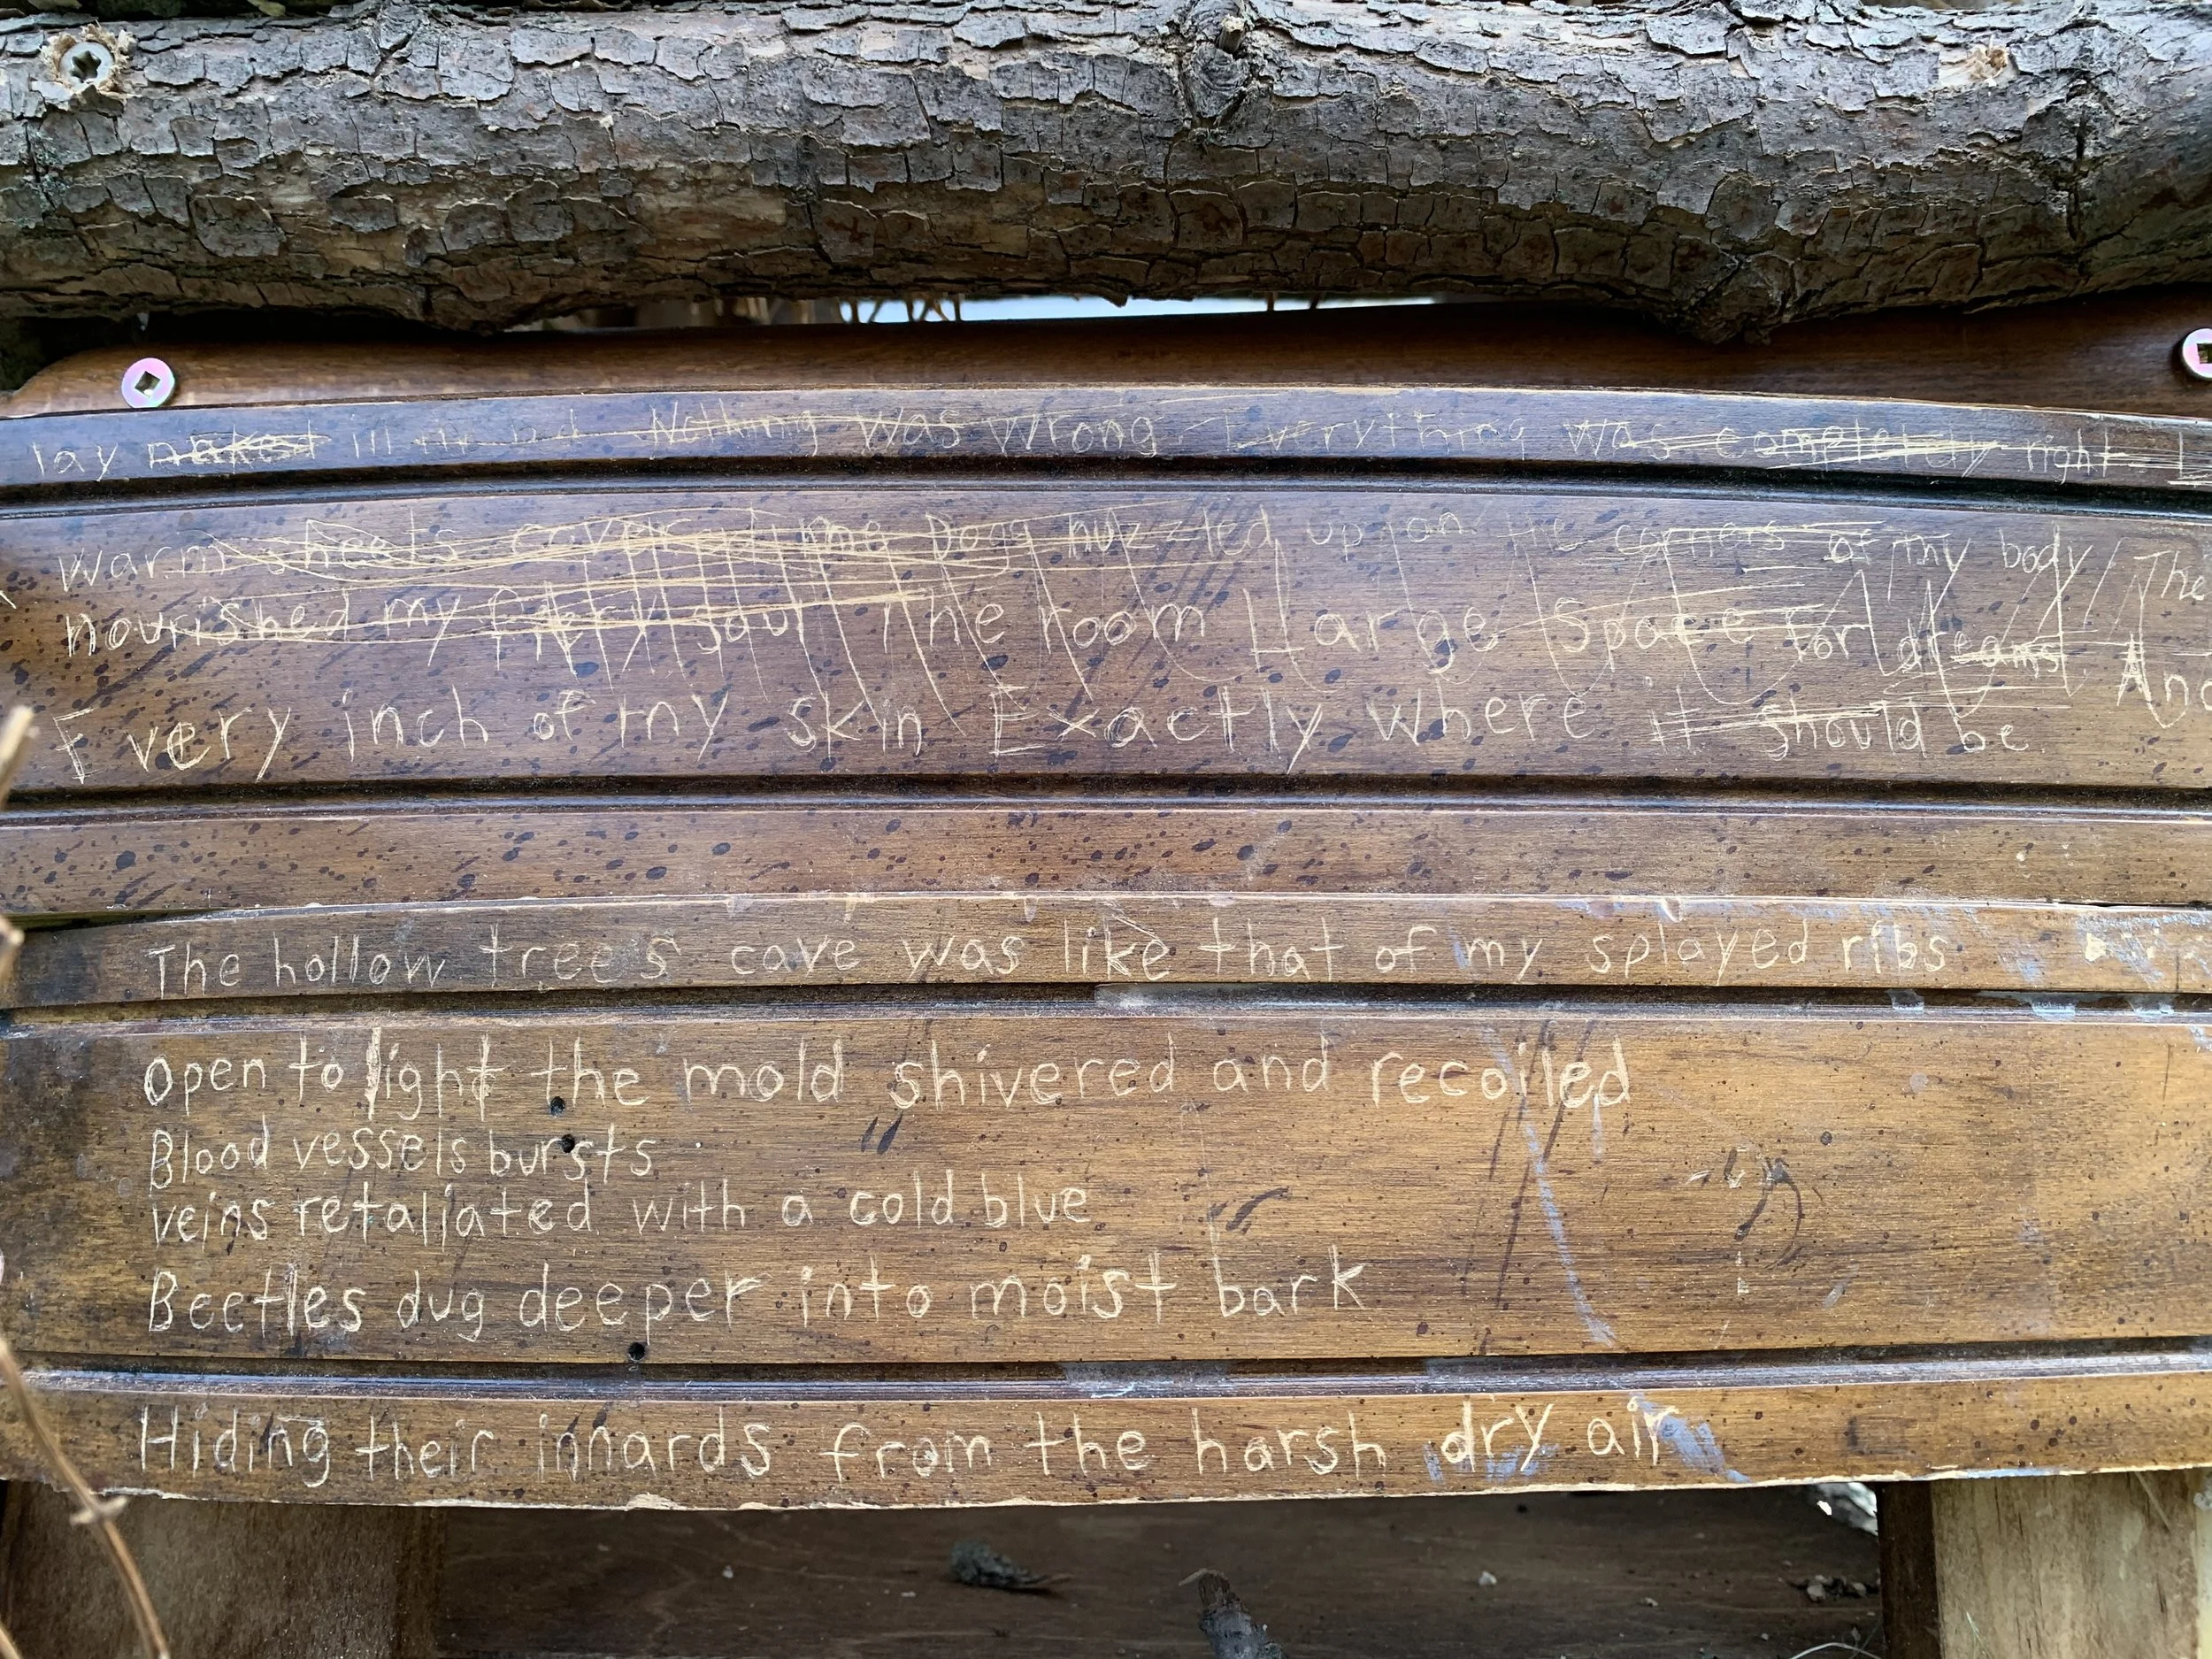 lay naked in my bed Nothing was wrong. Everything was completely right
warm sheets covered me Dogs nuzzled up on the corners of my body The
nourished my fiery soul The room Large Space for dreams. And
Every inch of my skin Exactly where it should be.
The hollow tree's cave was like that of my splayed ribs
Open to light the mold shivered and recoiled
Blood vessels bursts
veins retaliated with a cold blue
Beetles dug deeper into moist bark
Hiding their innards from the harsh dry air